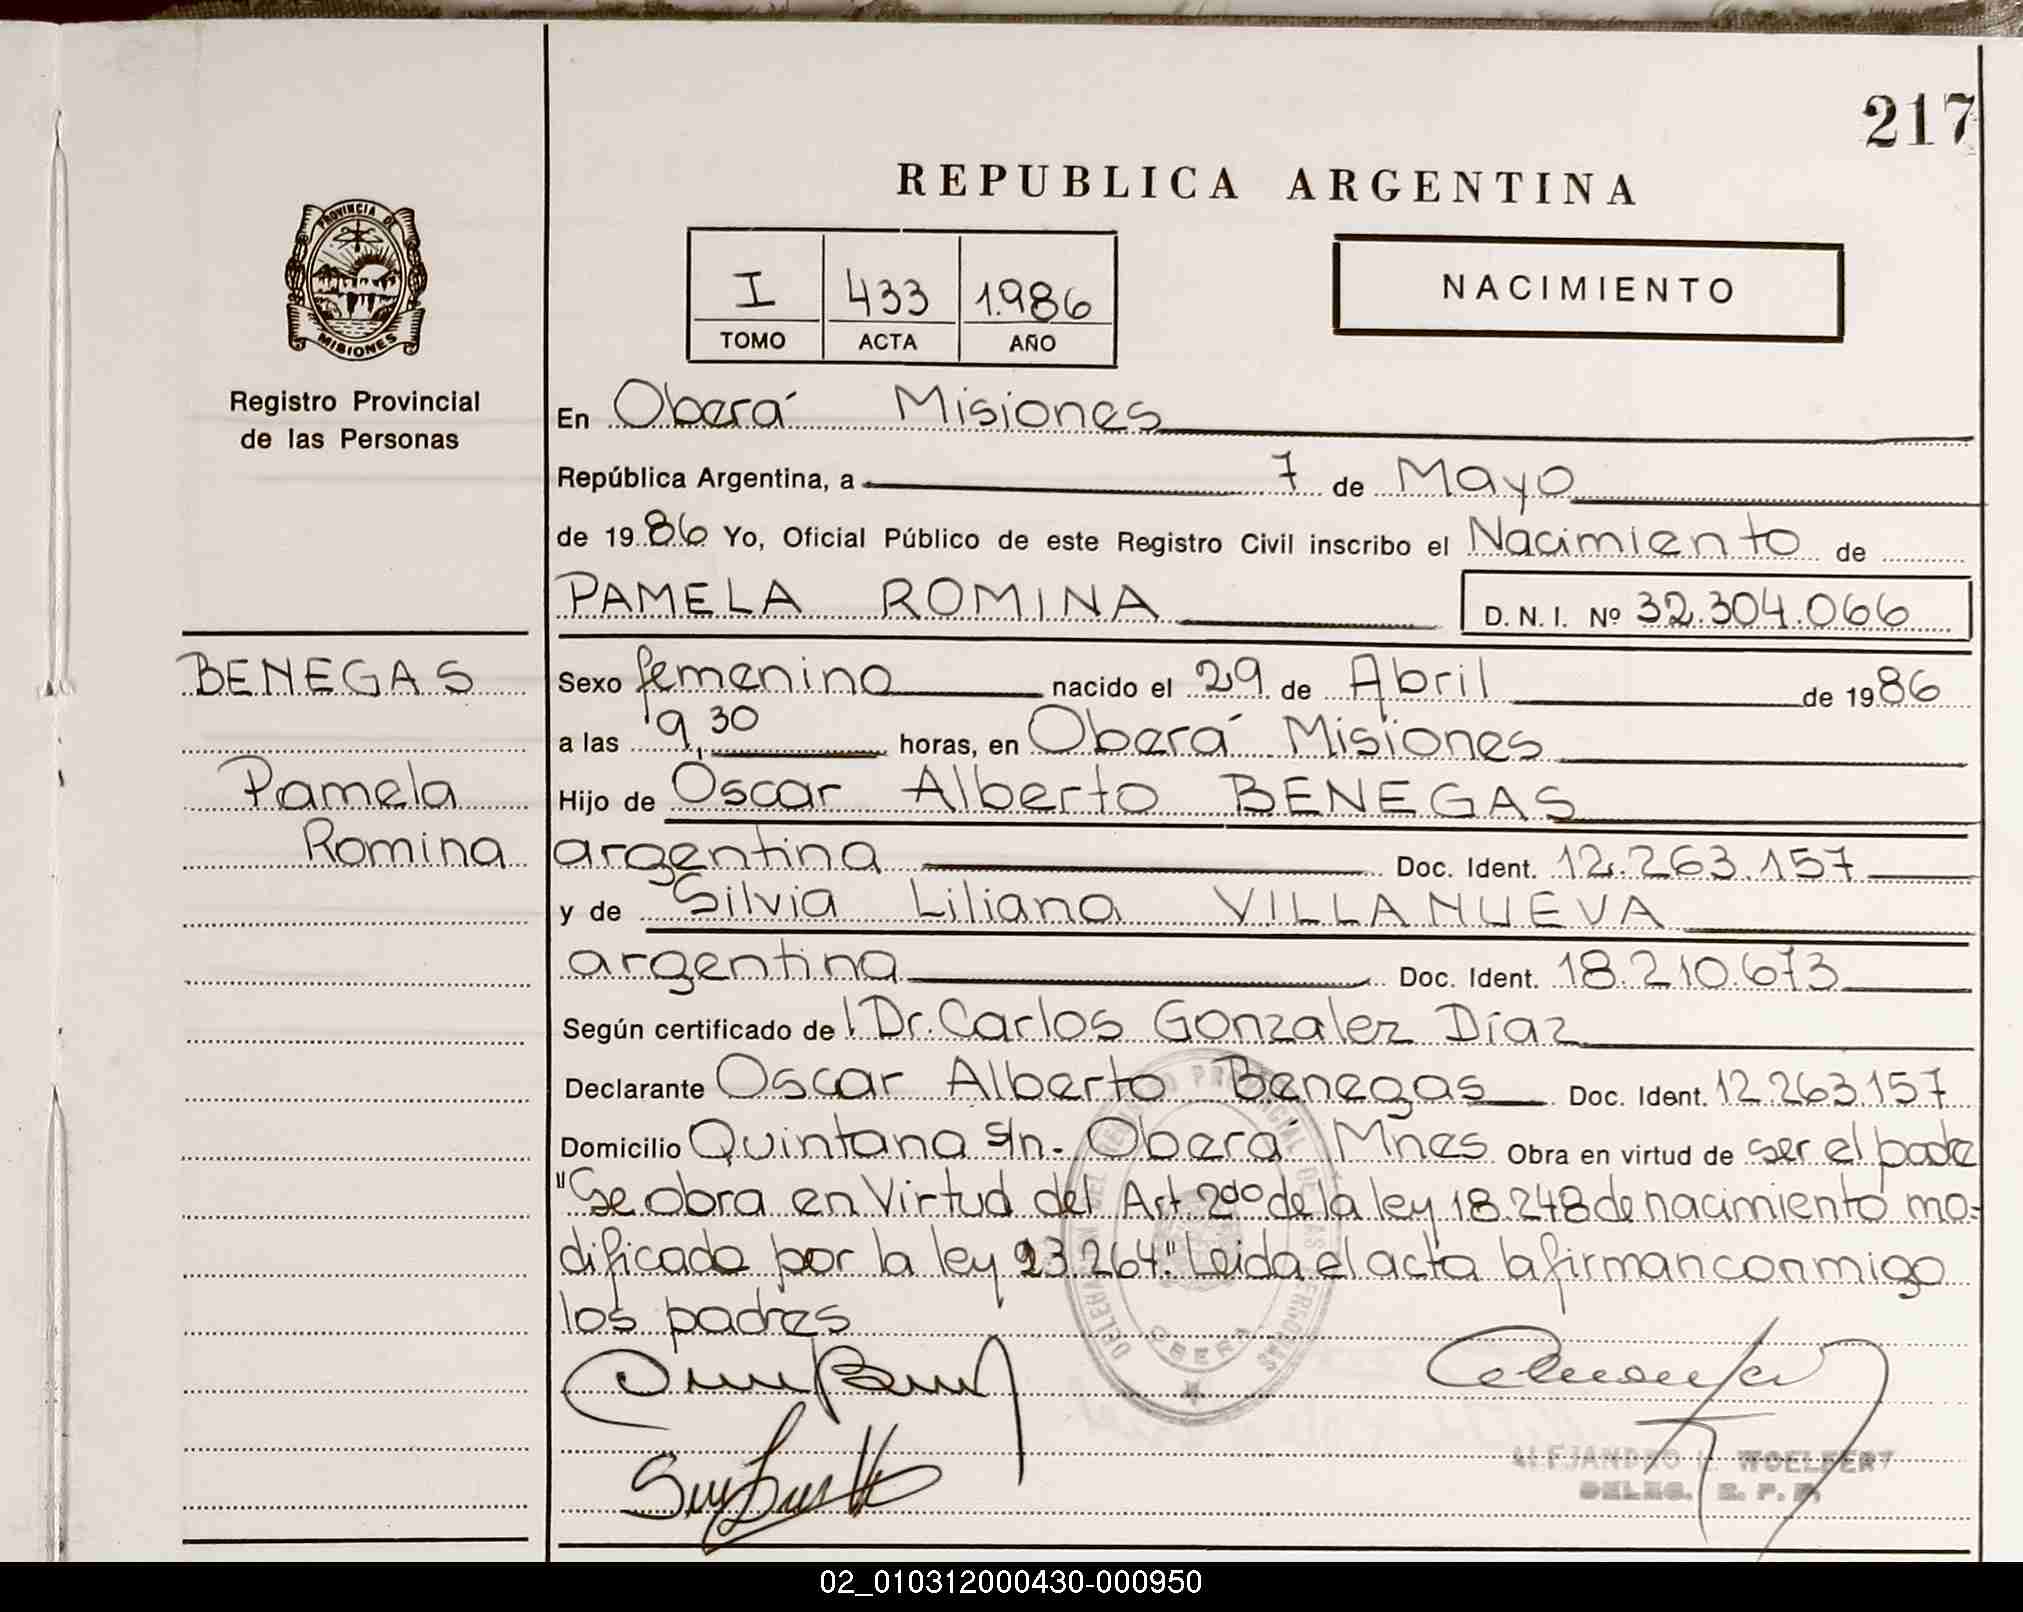 217
REPUBLICA ARGENTINA
PROVINCIA DE
MISIONES
I 433 1.986
TOMO ACTA AÑO
NACIMIENTO
Registro Provincial
de las Personas
En Oberá Misiones
República Argentina, a 7 de Mayo
de 1986 Yo, Oficial Público de este Registro Civil inscribo el Nacimiento de
PAMELA ROMINA D. N. I. Nº 32.304.066
BENEGAS
Pamela
Romina
Sexo femenino nacido el 29 de Abril de 1986
a las 9,30 horas, en Oberá Misiones
Hijo de Oscar Alberto BENEGAS
argentina Doc. Ident. 12.263.157
y de Silvia Liliana VILLANUEVA
argentina Doc. Ident. 18.210.673
Según certificado de l Dr. Carlos Gonzalez Díaz
Declarante Oscar Alberto Benegas Doc. Ident. 12.263.157
Domicilio Quintana s/n. Oberá Mnes Obra en virtud de ser el padre
"Se obra en Virtud del Art. 2do de la ley 18.248 de nacimiento mo-
dificado por la ley 23.264." Leida el acta la firman conmigo
los padres
OBERA
ALEJANDRO WOELFERT
DELEG. R. P. P.
02_010312000430-000950